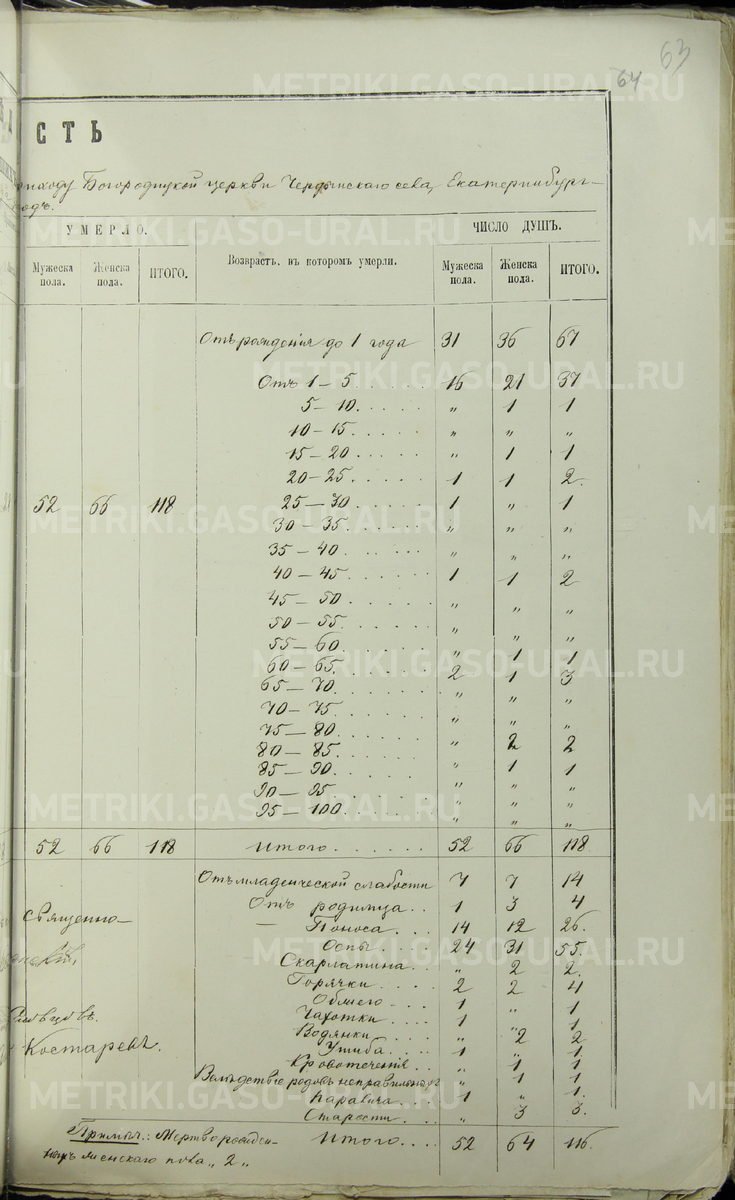 63
64
СТЬ
приходу Богородицкой церкви Чердынскаго села, Екатеринбург-
УМЕРЛО. ЧИСЛО ДУШЪ.
Мужеска пола. Женска пола. ИТОГО. Возрастъ, въ которомъ умерли. Мужеска пола. Женска пола. ИТОГО.
Отъ рожденія до 1 года 31 36 67
Отъ 1-5 16 21 37
5-10 „ 1 1
10-15 „ „ „
15-20 „ 1 1
20-25 1 1 2
52 66 118 25-30 1 „ 1
30-35 „ „ „
35-40 „ „ „
40-45 1 1 2
45-50 „ „ „
50-55 „ „ „
55-60 „ „ „
60-65 „ 1 1
65-70 2 1 3
70-75 „ „ „
75-80 „ „ „
80-85 „ 2 2
85-90 „ 1 1
90-95 „ „ „
95-100 „ „ „
52 66 118 Итого 52 66 118
Отъ младенческой слабости 7 7 14
Отъ родимца 1 3 4
Священно- — Поноса 14 12 26
Оспы 24 31 55
Скарлатина „ 2 2
Горячки 2 2 4
1 „ 1
Чахотки 1 „ 1
Водянки „ 2 2
Костаревъ. Ушиба 1 „ 1
Кровотеченія „ 1 1
Вслѣдствіе родовъ неправильныхъ „ 1 1
1 „ 1
Старости „ 3 3
Примѣч.: Мертворожден- Итого 52 64 116
ныхъ женскаго пола „2„
METRIKI.GASO-URAL.RU